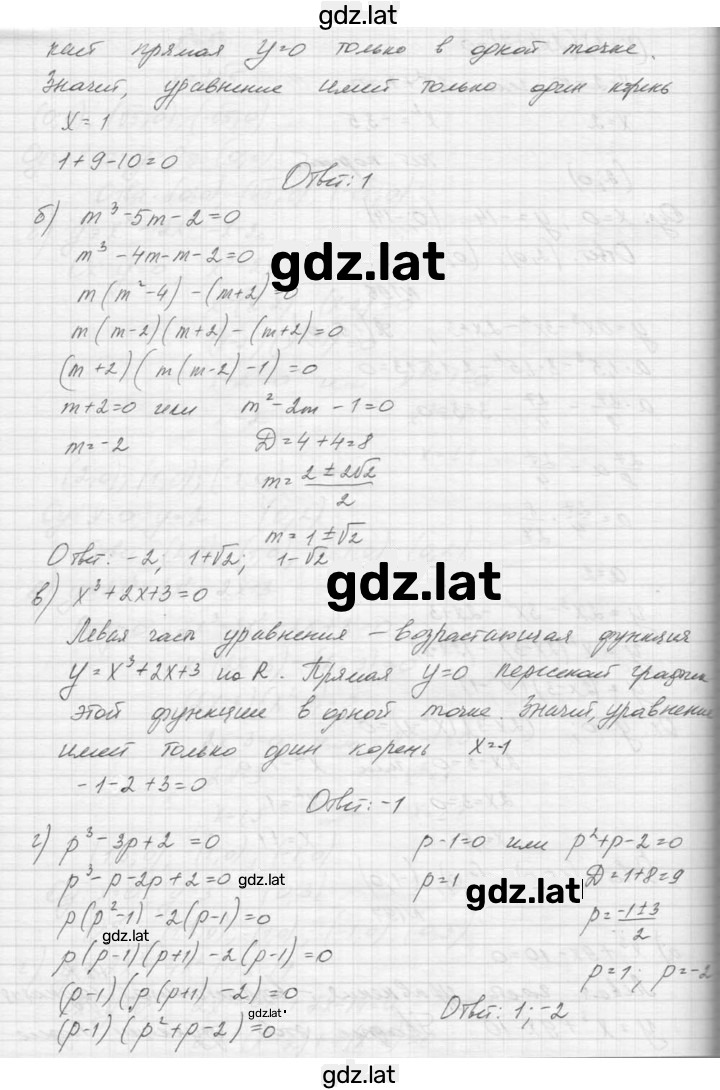 gdz.lat
кает прямая y=0 только в одной точке.
Значит, уравнение имеет только один корень
x=1
1+9-10=0
Ответ: 1
б) m³-5m-2=0
m³-4m-m-2=0
gdz.lat
m(m²-4)-(m+2)=0
m(m-2)(m+2)-(m+2)=0
(m+2)(m(m-2)-1)=0
m+2=0 или m²-2m-1=0
m=-2 D=4+4=8
m=(2±2√2)/2
m=1±√2
Ответ: -2; 1+√2; 1-√2
gdz.lat
в) x³+2x+3=0
Левая часть уравнения - возрастающая функция
y=x³+2x+3 на R. Прямая y=0 пересекает график
этой функции в одной точке. Значит, уравнение
имеет только один корень x=-1
-1-2+3=0
Ответ: -1
г) p³-3p+2=0 p-1=0 или p²+p-2=0
p³-p-2p+2=0 gdz.lat p=1 gdz.lat D=1+8=9
p(p²-1)-2(p-1)=0 p=(-1±3)/2
gdz.lat
p(p-1)(p+1)-2(p-1)=0
p=1; p=-2
(p-1)(p(p+1)-2)=0
(p-1)(p²+p-2)=0 gdz.lat Ответ: 1; -2
gdz.lat